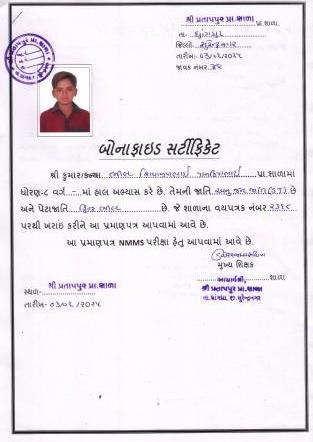 શ્રી પ્રતાપપુર પ્રા.શાળા પ્રા.શાળા
તા- ધ્રાંગધ્રા
જિલ્લો સુરેન્દ્રનગર
તારીખ- 03/0૮/૨૦૨૫
જાવક નંબર.
બોનાફાઇડ સર્ટીફિકેટ
શ્રી કુમાર/કન્યા પ્રા.શાળામાં
ધોરણ-૮ વર્ગ - માં હાલ અભ્યાસ કરે છે. તેમની જાતિ અનુ.જન જાતિ(S.T) છે
અને પેટાજાતિ હિન્દુ છે. જે શાળાના વયપત્રક નંબર
પરથી ખરાઈ કરીને આ પ્રમાણપત્ર આપવામાં આવે છે.
આ પ્રમાણપત્ર NMMS પરીક્ષા હેતુ આપવામાં આવે છે.
મુખ્ય શિક્ષક
આચાર્યશ્રી, શાળા
શ્રી પ્રતાપપુર પ્રા.શાળા
તા.ધ્રાંગધ્રા, જી.સુરેન્દ્રનગર
સ્થળ- શ્રી પ્રતાપપુર પ્રા.શાળા
તારીખ- 03/0૮/૨૦૨૫